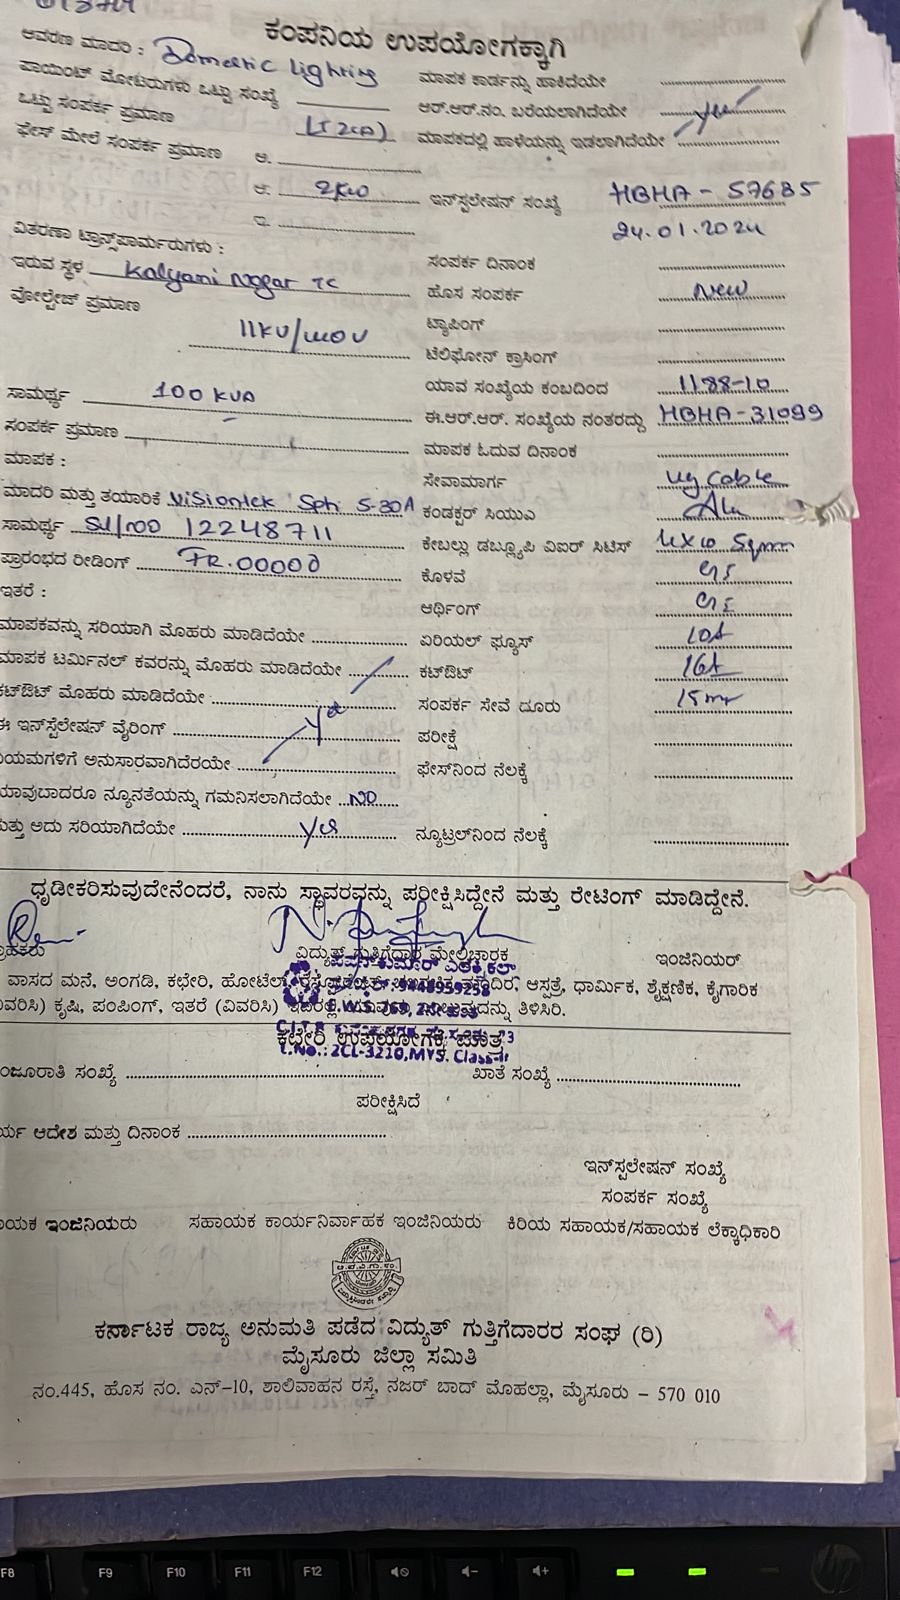 ಕಂಪನಿಯ ಉಪಯೋಗಕ್ಕಾಗಿ
ಆವರಣ ಮಾದರಿ : Domestic Lighting
ಮಾಪಕ ಕಾರ್ಡನ್ನು ಹಾಕಿದೆಯೇ
ಪಾಯಿಂಟ್ ಮೋಟರುಗಳು ಒಟ್ಟು ಸಂಖ್ಯೆ
ಆರ್.ಆರ್.ನಂ. ಬರೆಯಲಾಗಿದೆಯೇ yes
ಒಟ್ಟು ಸಂಪರ್ಕ ಪ್ರಮಾಣ
ಮಾಪಕದಲ್ಲಿ ಹಾಳೆಯನ್ನು ಇಡಲಾಗಿದೆಯೇ
ಫೇಸ್ ಮೇಲೆ ಸಂಪರ್ಕ ಪ್ರಮಾಣ ಅ.
ಆ. 2KW
ಇನ್‌ಸ್ಟಲೇಷನ್ ಸಂಖ್ಯೆ HBHA - 57685
ಇ.
24.01.2024
ವಿತರಣಾ ಟ್ರಾನ್ಸ್‌ಪಾರ್ಮರುಗಳು :
ಸಂಪರ್ಕ ದಿನಾಂಕ
ಇರುವ ಸ್ಥಳ Kalyani Nagar TC
ಹೊಸ ಸಂಪರ್ಕ New
ವೋಲ್ಟೇಜ್ ಪ್ರಮಾಣ
11KV/
ಟ್ಯಾಪಿಂಗ್
ಟೆಲಿಫೋನ್ ಕ್ರಾಸಿಂಗ್
ಸಾಮರ್ಥ್ಯ 100 KVA
ಯಾವ ಸಂಖ್ಯೆಯ ಕಂಬದಿಂದ 1188-10
ಸಂಪರ್ಕ ಪ್ರಮಾಣ
ಈ.ಆರ್.ಆರ್. ಸಂಖ್ಯೆಯ ನಂತರದ್ದು HBHA-31099
ಮಾಪಕ :
ಮಾಪಕ ಓದುವ ದಿನಾಂಕ
ಮಾದರಿ ಮತ್ತು ತಯಾರಿಕೆ Visiontek Sph 5-30A
ಸೇವಾಮಾರ್ಗ ug cable
ಸಾಮರ್ಥ್ಯ Sl/no 12248711
ಕಂಡಕ್ಟರ್ ಸಿಯುಎ Alu
ಪ್ರಾರಂಭದ ರೀಡಿಂಗ್ FR.00000
ಕೇಬಲ್ಲು ಡಬ್ಲ್ಯೂಪಿ ವಿಐರ್ ಸಿಟಿಸ್ 4x10 Sqmm
ಇತರೆ :
ಕೊಳವೆ GI
ಆರ್ಥಿಂಗ್ GI
ಮಾಪಕವನ್ನು ಸರಿಯಾಗಿ ಮೊಹರು ಮಾಡಿದೆಯೇ
ಏರಿಯಲ್ ಫ್ಯೂಸ್ 10A
ಮಾಪಕ ಟರ್ಮಿನಲ್ ಕವರನ್ನು ಮೊಹರು ಮಾಡಿದೆಯೇ
ಕಟ್‌ಔಟ್ 16A
ಕಟ್‌ಔಟ್ ಮೊಹರು ಮಾಡಿದೆಯೇ
ಸಂಪರ್ಕ ಸೇವೆ ದೂರು 15mt
ಈ ಇನ್‌ಸ್ಟೆಲೇಷನ್ ವೈರಿಂಗ್ yes
ಪರೀಕ್ಷೆ
ನಿಯಮಗಳಿಗೆ ಅನುಸಾರವಾಗಿದೆರಯೇ
ಫೇಸ್‌ನಿಂದ ನೆಲಕ್ಕೆ
ಯಾವುಬಾದರೂ ನ್ಯೂನತೆಯನ್ನು ಗಮನಿಸಲಾಗಿದೆಯೇ NO
ಮತ್ತು ಅದು ಸರಿಯಾಗಿದೆಯೇ yes
ನ್ಯೂಟ್ರಲ್‌ನಿಂದ ನೆಲಕ್ಕೆ
ಧೃಡೀಕರಿಸುವುದೇನೆಂದರೆ, ನಾನು ಸ್ಥಾವರವನ್ನು ಪರೀಕ್ಷಿಸಿದ್ದೇನೆ ಮತ್ತು ರೇಟಿಂಗ್ ಮಾಡಿದ್ದೇನೆ.
ವಿದ್ಯುತ್ ಗುತ್ತಿಗೆದಾರ ಮೇಲ್ವಿಚಾರಕ
ಇಂಜಿನಿಯರ್
ವಾಸದ ಮನೆ, ಅಂಗಡಿ, ಕಛೇರಿ, ಹೋಟೆಲ್, ಆಸ್ಪತ್ರೆ, ಧಾರ್ಮಿಕ, ಶೈಕ್ಷಣಿಕ, ಕೈಗಾರಿಕ
(ವಿವರಿಸಿ) ಕೃಷಿ, ಪಂಪಿಂಗ್, ಇತರೆ (ವಿವರಿಸಿ) ತಿಳಿಸಿರಿ.
ಕಛೇರಿ ಉಪಯೋಗಕ್ಕೆ ಮಾತ್ರ
L.No.: 2CL-3210, MYS. Class-II
ಮಂಜೂರಾತಿ ಸಂಖ್ಯೆ
ಖಾತೆ ಸಂಖ್ಯೆ
ಪರೀಕ್ಷಿಸಿದೆ
ಆದೇಶ ಮತ್ತು ದಿನಾಂಕ
ಇನ್‌ಸ್ಟಲೇಷನ್ ಸಂಖ್ಯೆ
ಸಂಪರ್ಕ ಸಂಖ್ಯೆ
ಇಂಜಿನಿಯರು
ಸಹಾಯಕ ಕಾರ್ಯನಿರ್ವಾಹಕ ಇಂಜಿನಿಯರು
ಕಿರಿಯ ಸಹಾಯಕ/ಸಹಾಯಕ ಲೆಕ್ಕಾಧಿಕಾರಿ
ಕರ್ನಾಟಕ ರಾಜ್ಯ ಅನುಮತಿ ಪಡೆದ ವಿದ್ಯುತ್ ಗುತ್ತಿಗೆದಾರರ ಸಂಘ (ರಿ)
ಮೈಸೂರು ಜಿಲ್ಲಾ ಸಮಿತಿ
ನಂ.445, ಹೊಸ ನಂ. ಎನ್-10, ಶಾಲಿವಾಹನ ರಸ್ತೆ, ನಜರ್ ಬಾದ್ ಮೊಹಲ್ಲಾ, ಮೈಸೂರು - 570 010
F8 F9 F10 F11 F12